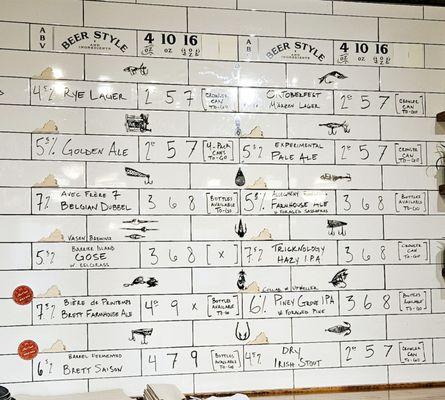 ABV
BEER STYLE
AND INGREDIENTS
4 OZ 10 OZ 16 OZ
4.5% RYE LAGER 2 5 7 [CROWLER CAN TO-GO]
5.5% GOLDEN ALE 2 5 7 [4-PACK CANS TO-GO]
AVEC FRÈRE 7
7% BELGIAN DUBBEL 3 6 8 [BOTTLES AVAILABLE TO-GO]
VASEN BREWING
BARRIER ISLAND
5% GOSE 3 6 8 [X]
W.
7% BIÈRE DE PRINTEMPS
BRETT FARMHOUSE ALE 4 9 X [BOTTLES AVAILABLE TO-GO]
BARREL FERMENTED
6% BRETT SAISON 4 7 9 [BOTTLES AVAILABLE TO-GO]
ABV
BEER STYLE
AND INGREDIENTS
4 OZ 10 OZ 16 OZ
OKTOBERFEST
MARZEN LAGER 2 5 7 [CROWLER CAN TO-GO]
5% EXPERIMENTAL
PALE ALE 2 5 7 [CROWLER CAN TO-GO]
ALLEGHENY
FARMHOUSE ALE 3 6 8 [BOTTLES AVAILABLE TO-GO]
W FORAGED SASSAFRAS
7% TRICKNOLOGY
HAZY IPA 3 6 8 [CROWLER CAN TO-GO]
COLLAB W
6% PINEY GROVE IPA 3 6 8 [BOTTLES AVAILABLE TO-GO]
W FORAGED PINE
4% DRY
IRISH STOUT 2 5 7 [CROWLER CAN TO-GO]